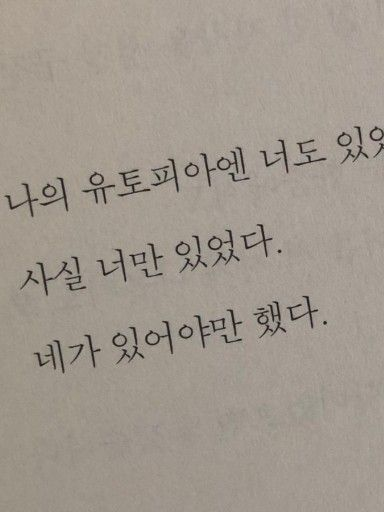 나의 유토피아엔 너도 있었
사실 너만 있었다.
네가 있어야만 했다.